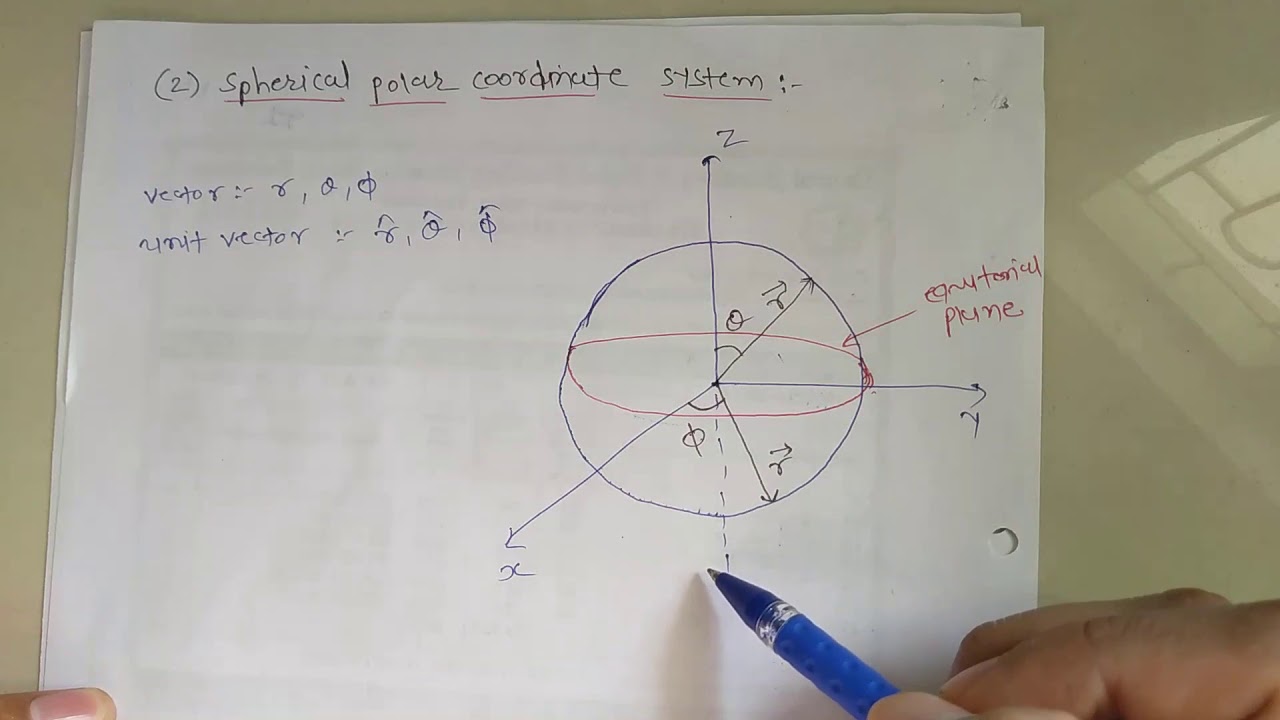 (2) Spherical polar coordinate system :-
vector :- r, θ, ϕ
unit vector :- r̂, θ̂, ϕ̂
Z
equtorial
plane
θ
r⃗
y
ϕ
r⃗
x